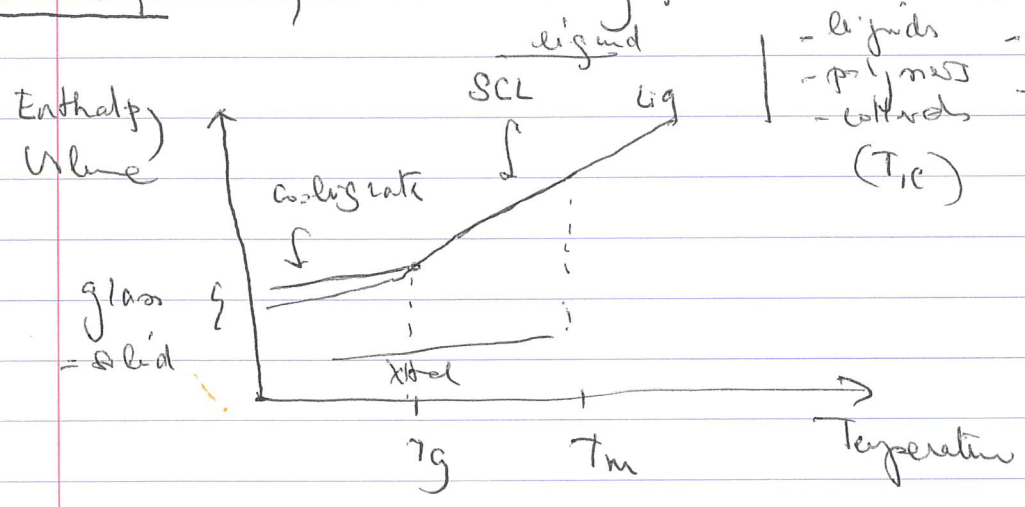 liquid
- liquids
- polymers
- colloids
(T,C)
SCL
Liq
Enthalpy
Volume
cooling rate
glass
= solid
Xtal
Tg
Tm
Temperature